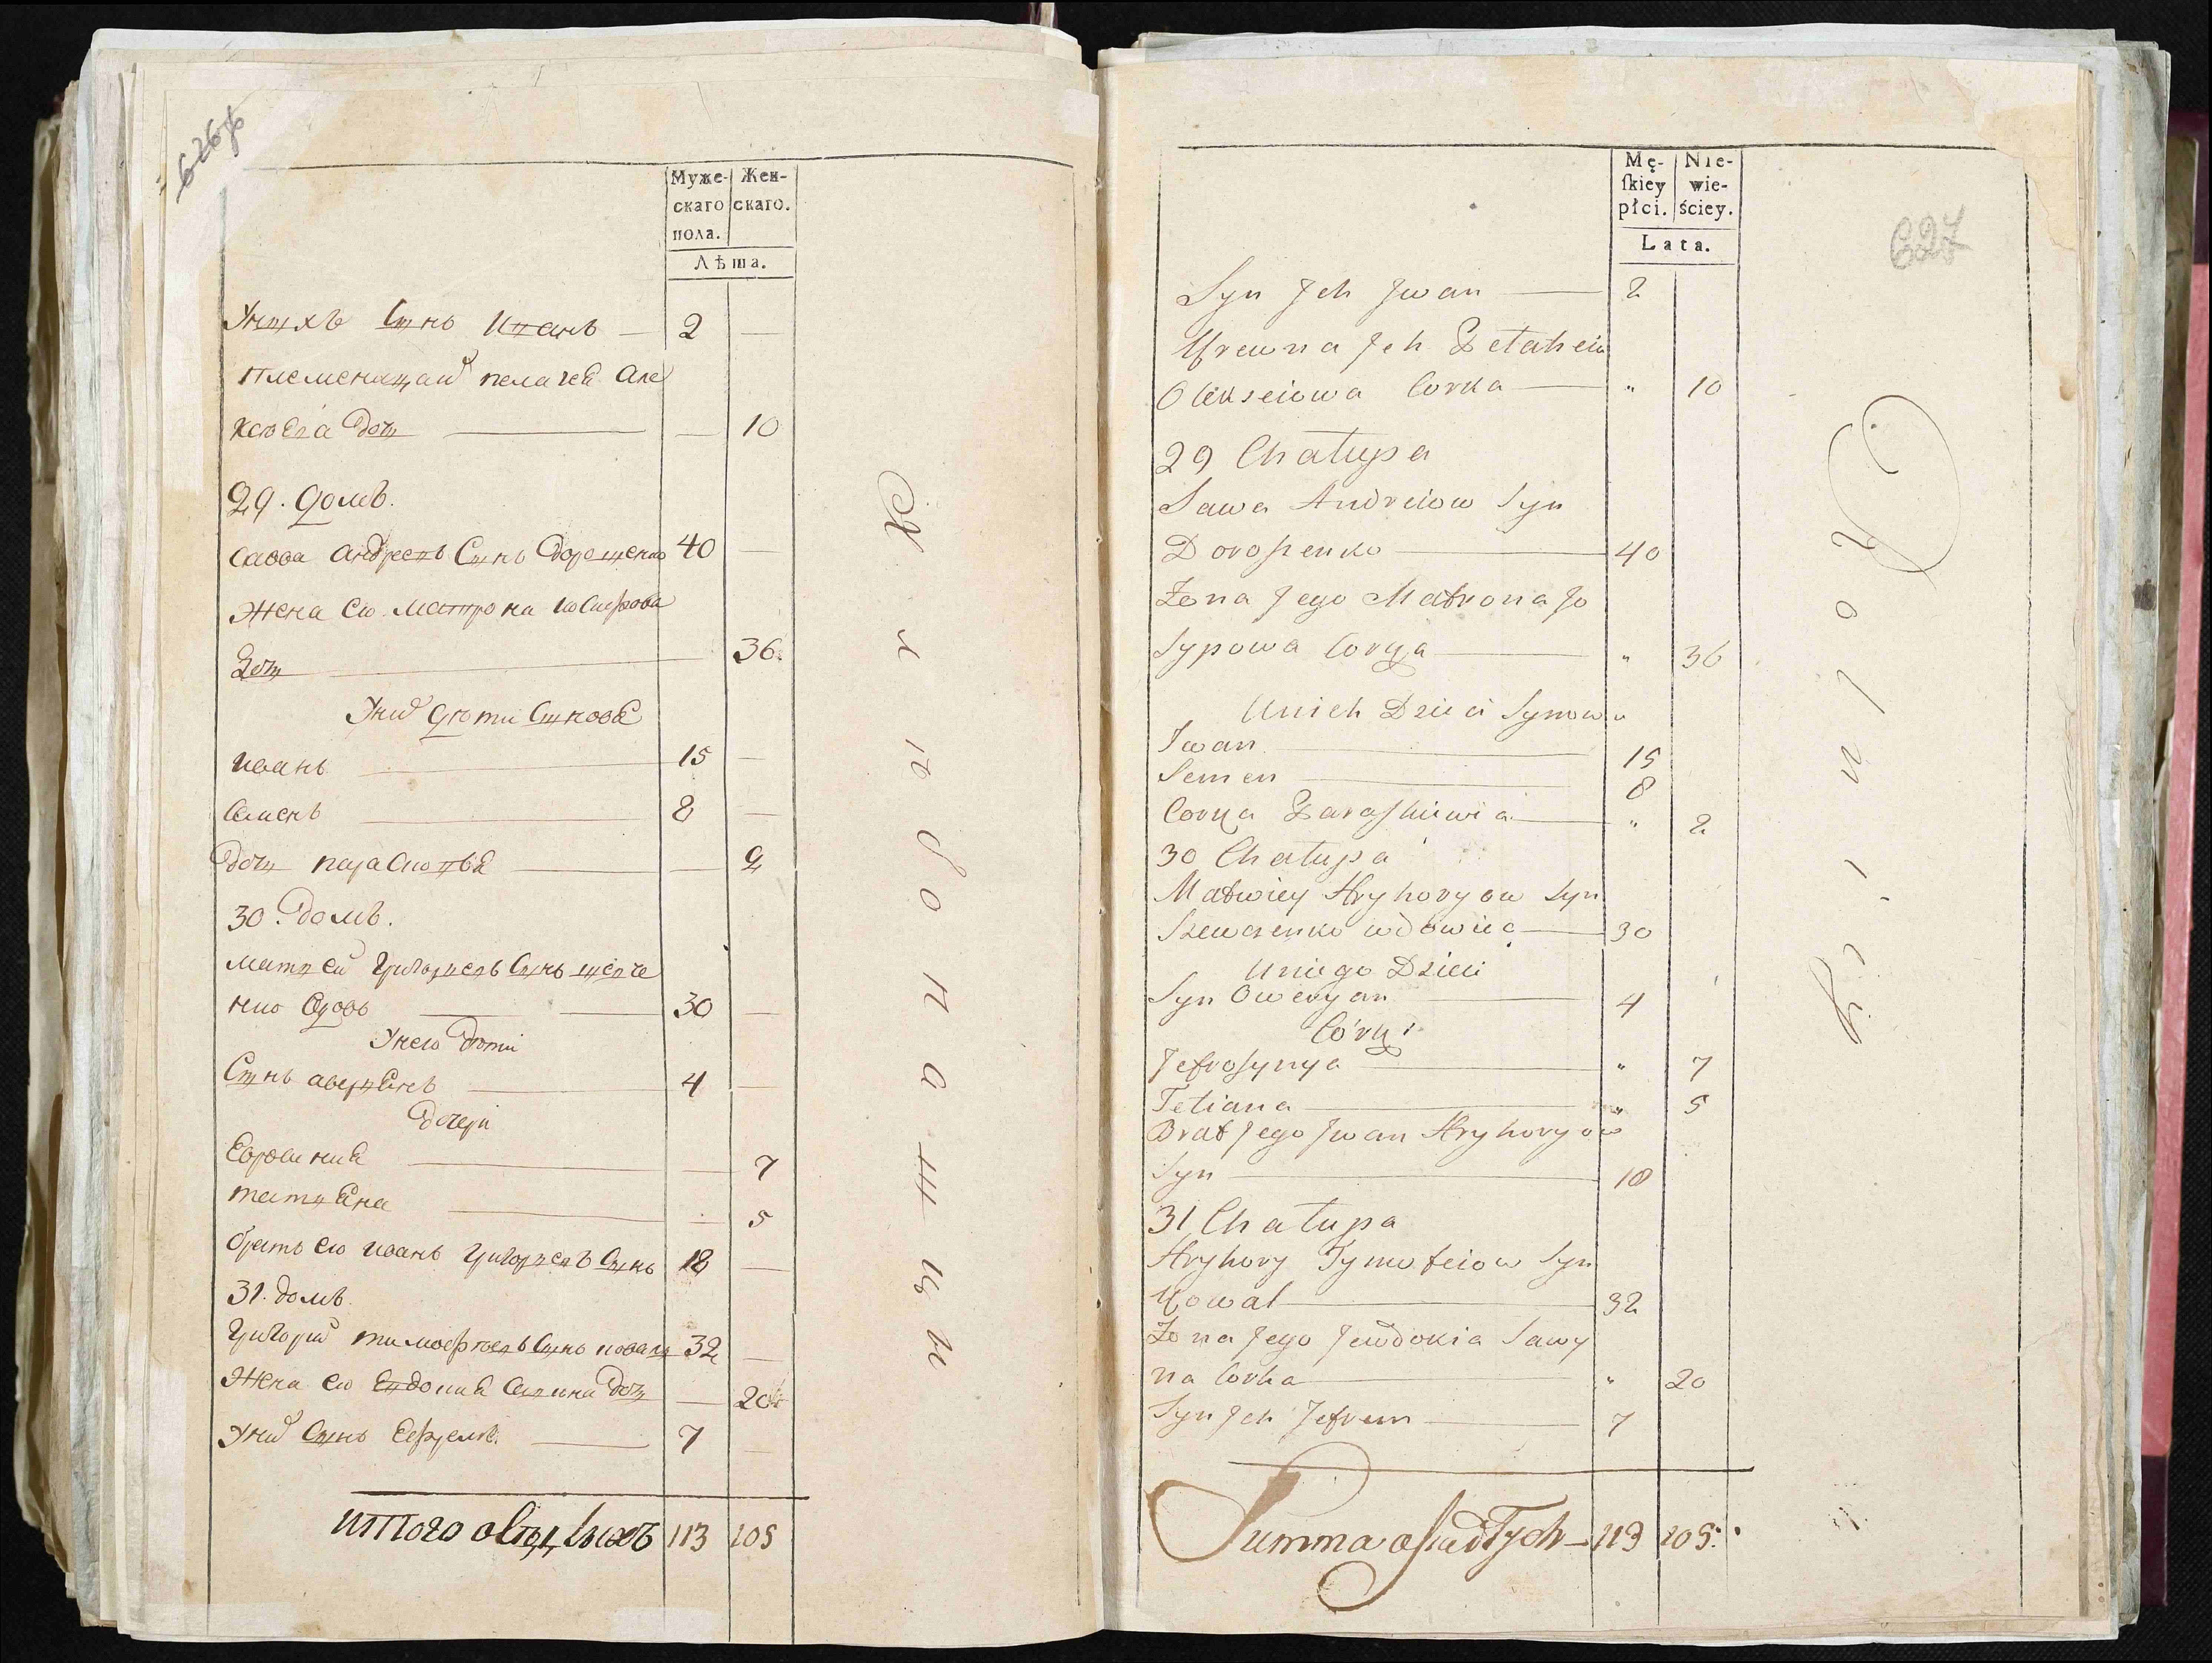 626 об
Мужескаго пола. | Женскаго.
Лѣта.
У нихъ Сынъ Иванъ — 2 —
Племенница Пелагея Але
ксѣева Дочь — — 10
29. домъ.
Савва Андреевъ Сынъ Дорошенко 40 —
Жена ево Матрона Иосифова
Дочь — 36.
У них дѣти Сыновя
Иванъ — 15 —
Семенъ — 8 —
Дочь Парасковья — — 2
30. домъ.
Матвей Григорьевъ Сынъ Шевче
нко Вдовъ — 30 —
У нево дѣти
Сынъ Аверьянъ — 4 —
Дочери
Евросиния — — 7
Татьяна — — 5
братъ ево Иванъ Григорьевъ Сынъ 18 —
31. домъ.
Григорий Тимофѣевъ Сынъ Коваль 32 —
Жена ево Евдокия Савина Дочь — 20
У них Сынъ Ефремъ. — 7 —
Итого оседлыхъ 113 105
627
Mę-skiey płci. | Nie-wie-ściey.
Lata.
Syn Jch Jwan — 2
Krewna Jch Pelaheia
Olekseiowa Corka — " 10
29 Chałupa
Sawa Andreiow Syn
Doroszenko — 40
Żona Jego Matrona Jo
sypowa Corka — " 36
U nich Dzieci Synowie
Jwan — 15
Semen — 8
Corka Paraskiewia — " 2
30 Chałupa
Matwiey Hryhoryow Syn
Szewczenko wdowiec — 30
U niego Dzieci
Syn Oweryan — 4
Córki
Jefrosynya — " 7
Tetiana — " 5
Brat Jego Jwan Hryhoryow
Syn — 18
31 Chałupa
Hryhory Tymofeiow Syn
Kowal — 32
Żona Jego Jewdokia Sawy
na Corka — " 20
Syn Jch Jefrem — 7
Summa osiadłych — 113 105.